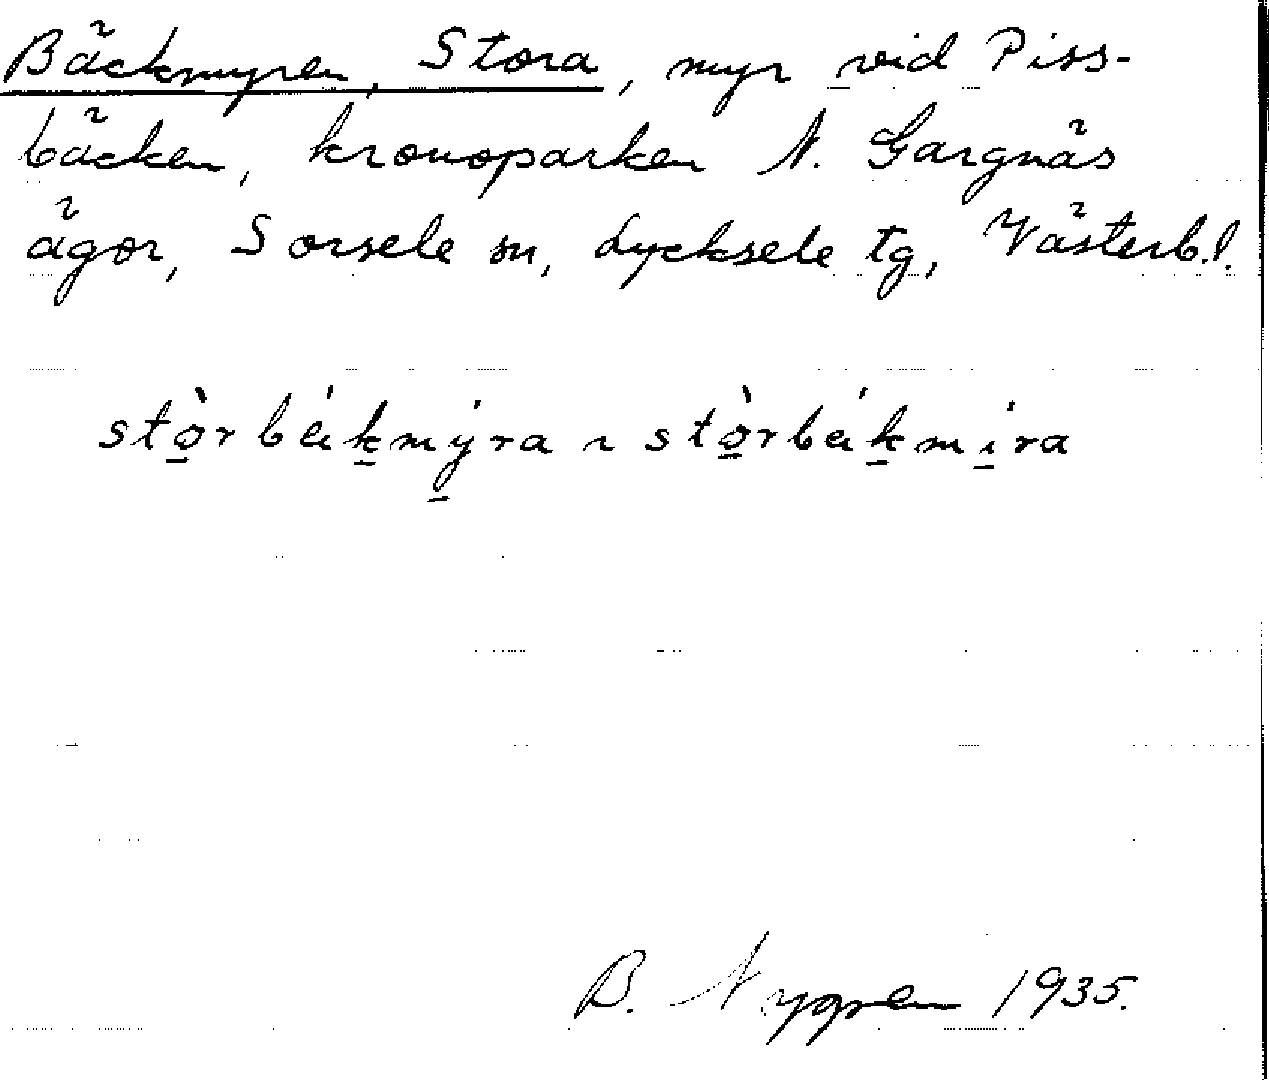 Bäckmyren, Stora, myr vid Piss-
bäcken, kronoparken N. Gargnäs
ägor, Sorsele sn, Lycksele tg, Västerb.l.
stò̱rbäḵmý̱ra ~ stò̱rbäḵmí̱ra
B. Nygren 1935.